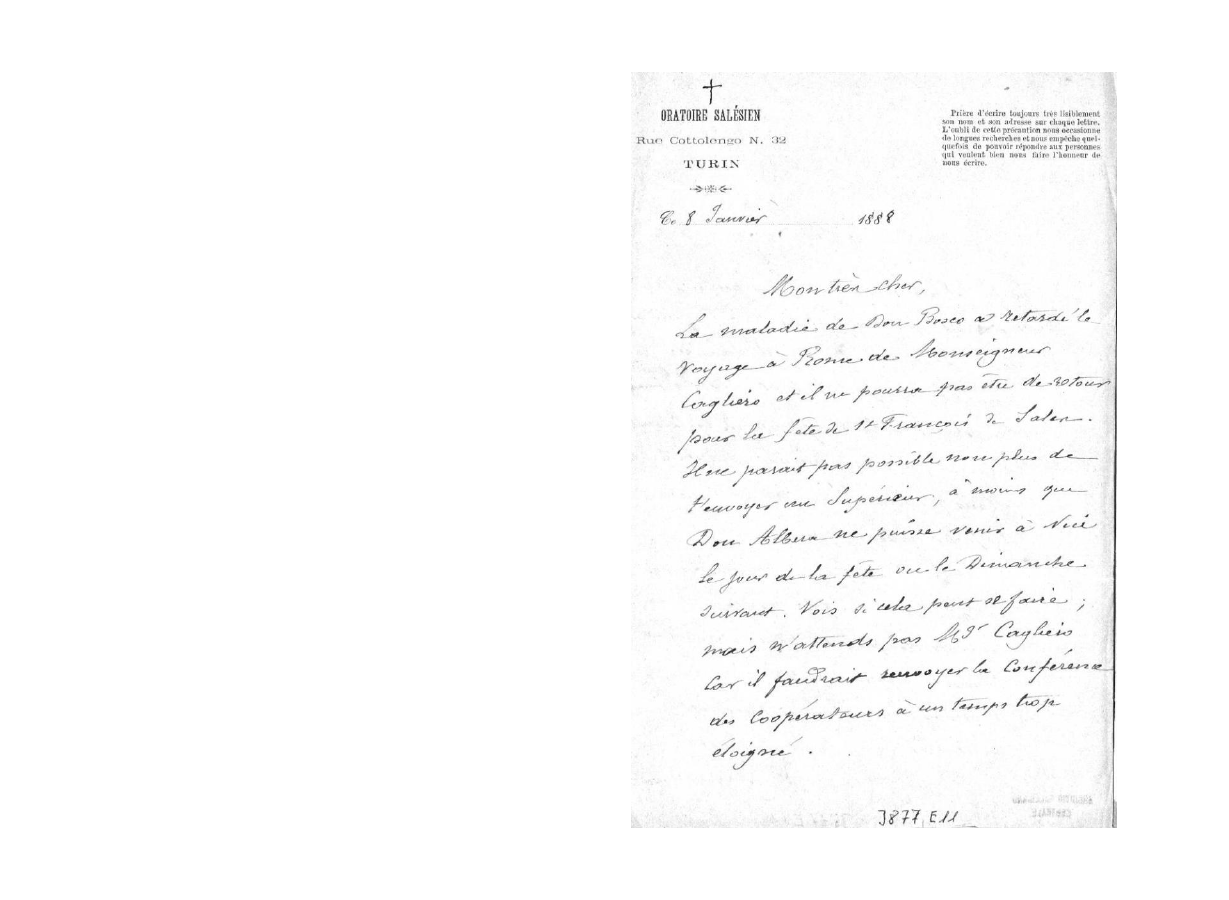 ORATOIRE SALÉSIEN
Rue Cottolengo N. 32
TURIN
Prière d'écrire toujours très lisiblement
son nom et son adresse sur chaque lettre.
L'oubli de cette précaution nous occasionne
de longues recherches et nous empêche quel-
quefois de pouvoir répondre aux personnes
qui veulent bien nous faire l'honneur de
nous écrire.
Ce 8 Janvier 1888
Mon très cher,
La maladie de Don Bosco a retardé le
voyage à Rome de Monseigneur
Cagliero et il ne pourra pas être de retour
pour la fête de St François de Sales.
Il ne parait pas possible non plus de
t'envoyer un Supérieur, à moins que
Don Albera ne puisse venir à Nice
le jour de la fête ou le Dimanche
suivant. Vois si cela peut se faire;
mais n'attends pas Mgr Cagliero
car il faudrait renvoyer la Conférence
des Coopérateurs à un temps trop
éloigné.
3877 E11